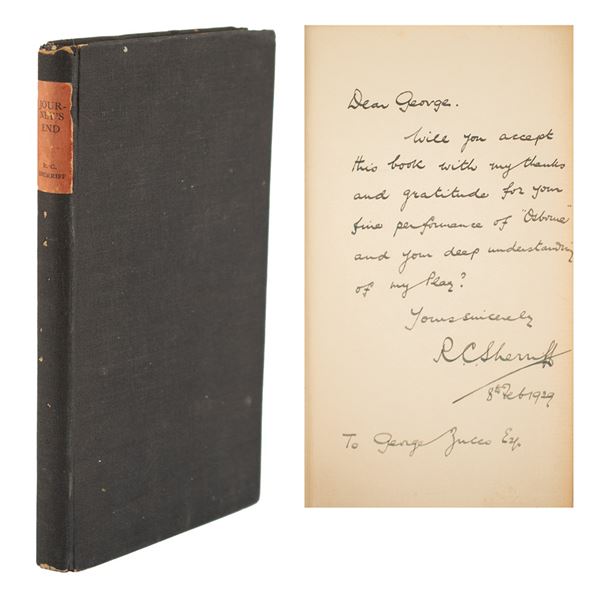 JOUR-
NEY'S
END
R. C.
SHERRIFF
Dear George.
Will you accept
this book with my thanks
and gratitude for your
fine performance of "Osborne"
and your deep understanding
of my Play?
Yours sincerely
R.C. Sherriff
8th Feb 1929
To George Zucco Esq.